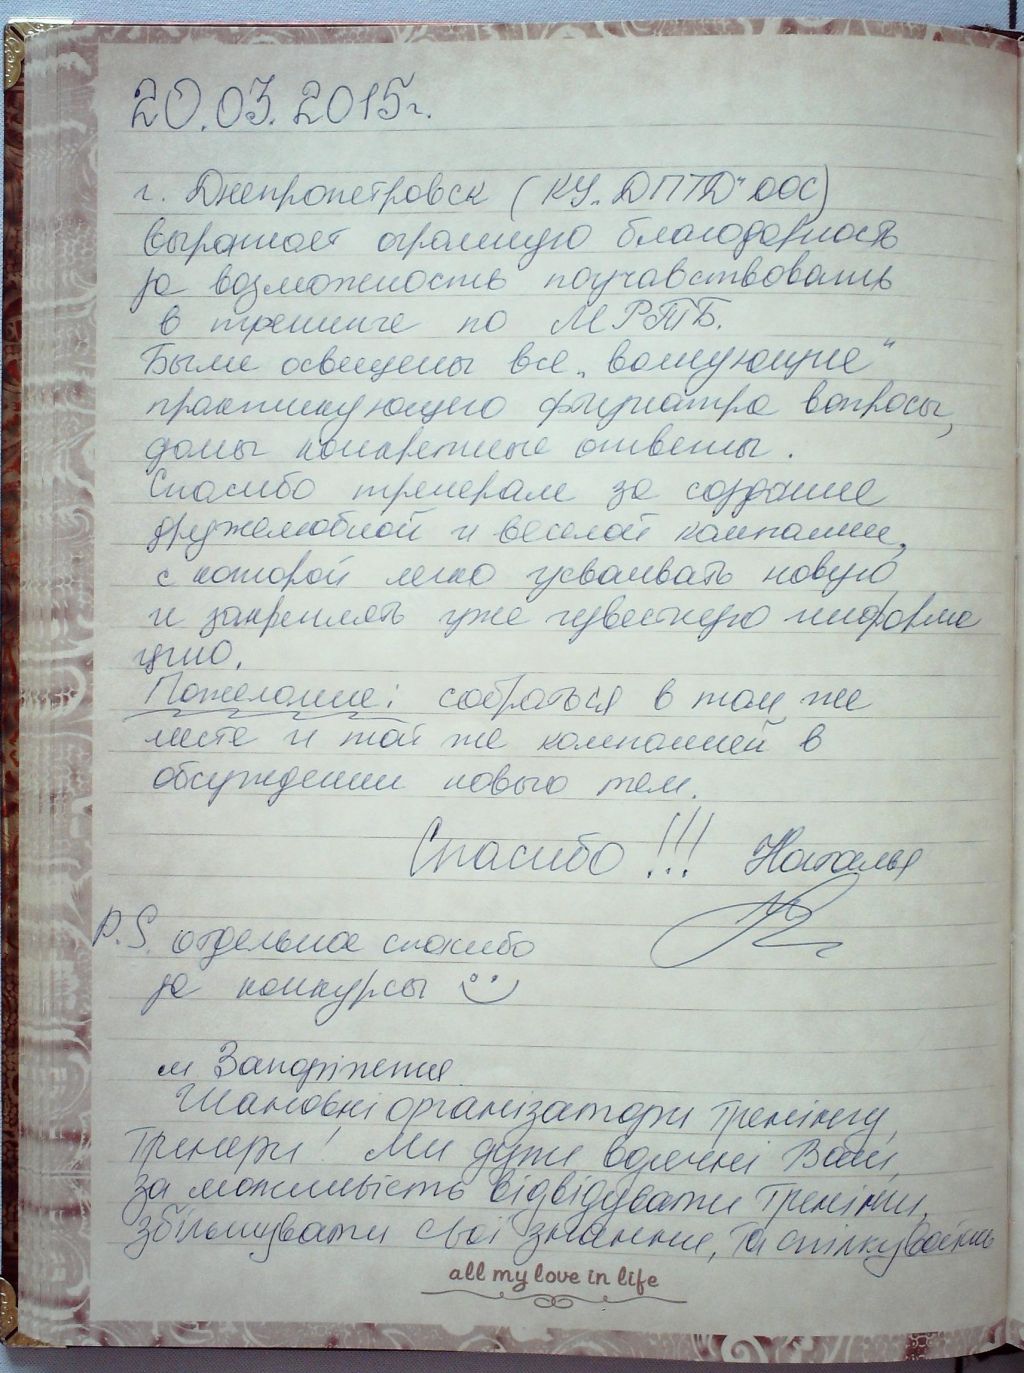 20.03.2015г.
г. Днепропетровск (КУ „ДПТД" ДОС)
выражает огромную благодарность
за возможность поучавствовать
в тренинге по МРТБ.
Были освещены все „волнующие"
практикующего фтизиатра вопросы,
даны конкретные ответы.
Спасибо тренерам за создание
дружелюбной и веселой компании,
с которой легко усваивать новую
и закреплять уже известную информа
цию.
Пожелание: собраться в том же
месте и той же компанией в
обсуждении новых тем.
Спасибо!!! Наталья
P.S. отдельное спасибо
за конкурсы
м Запоріжжя
Шановні організатори тренінгу,
тренери! Ми дуже вдячні Вам,
за можливість відвідувати тренінги,
збільшувати свої знання, та спілкування
all my love in life